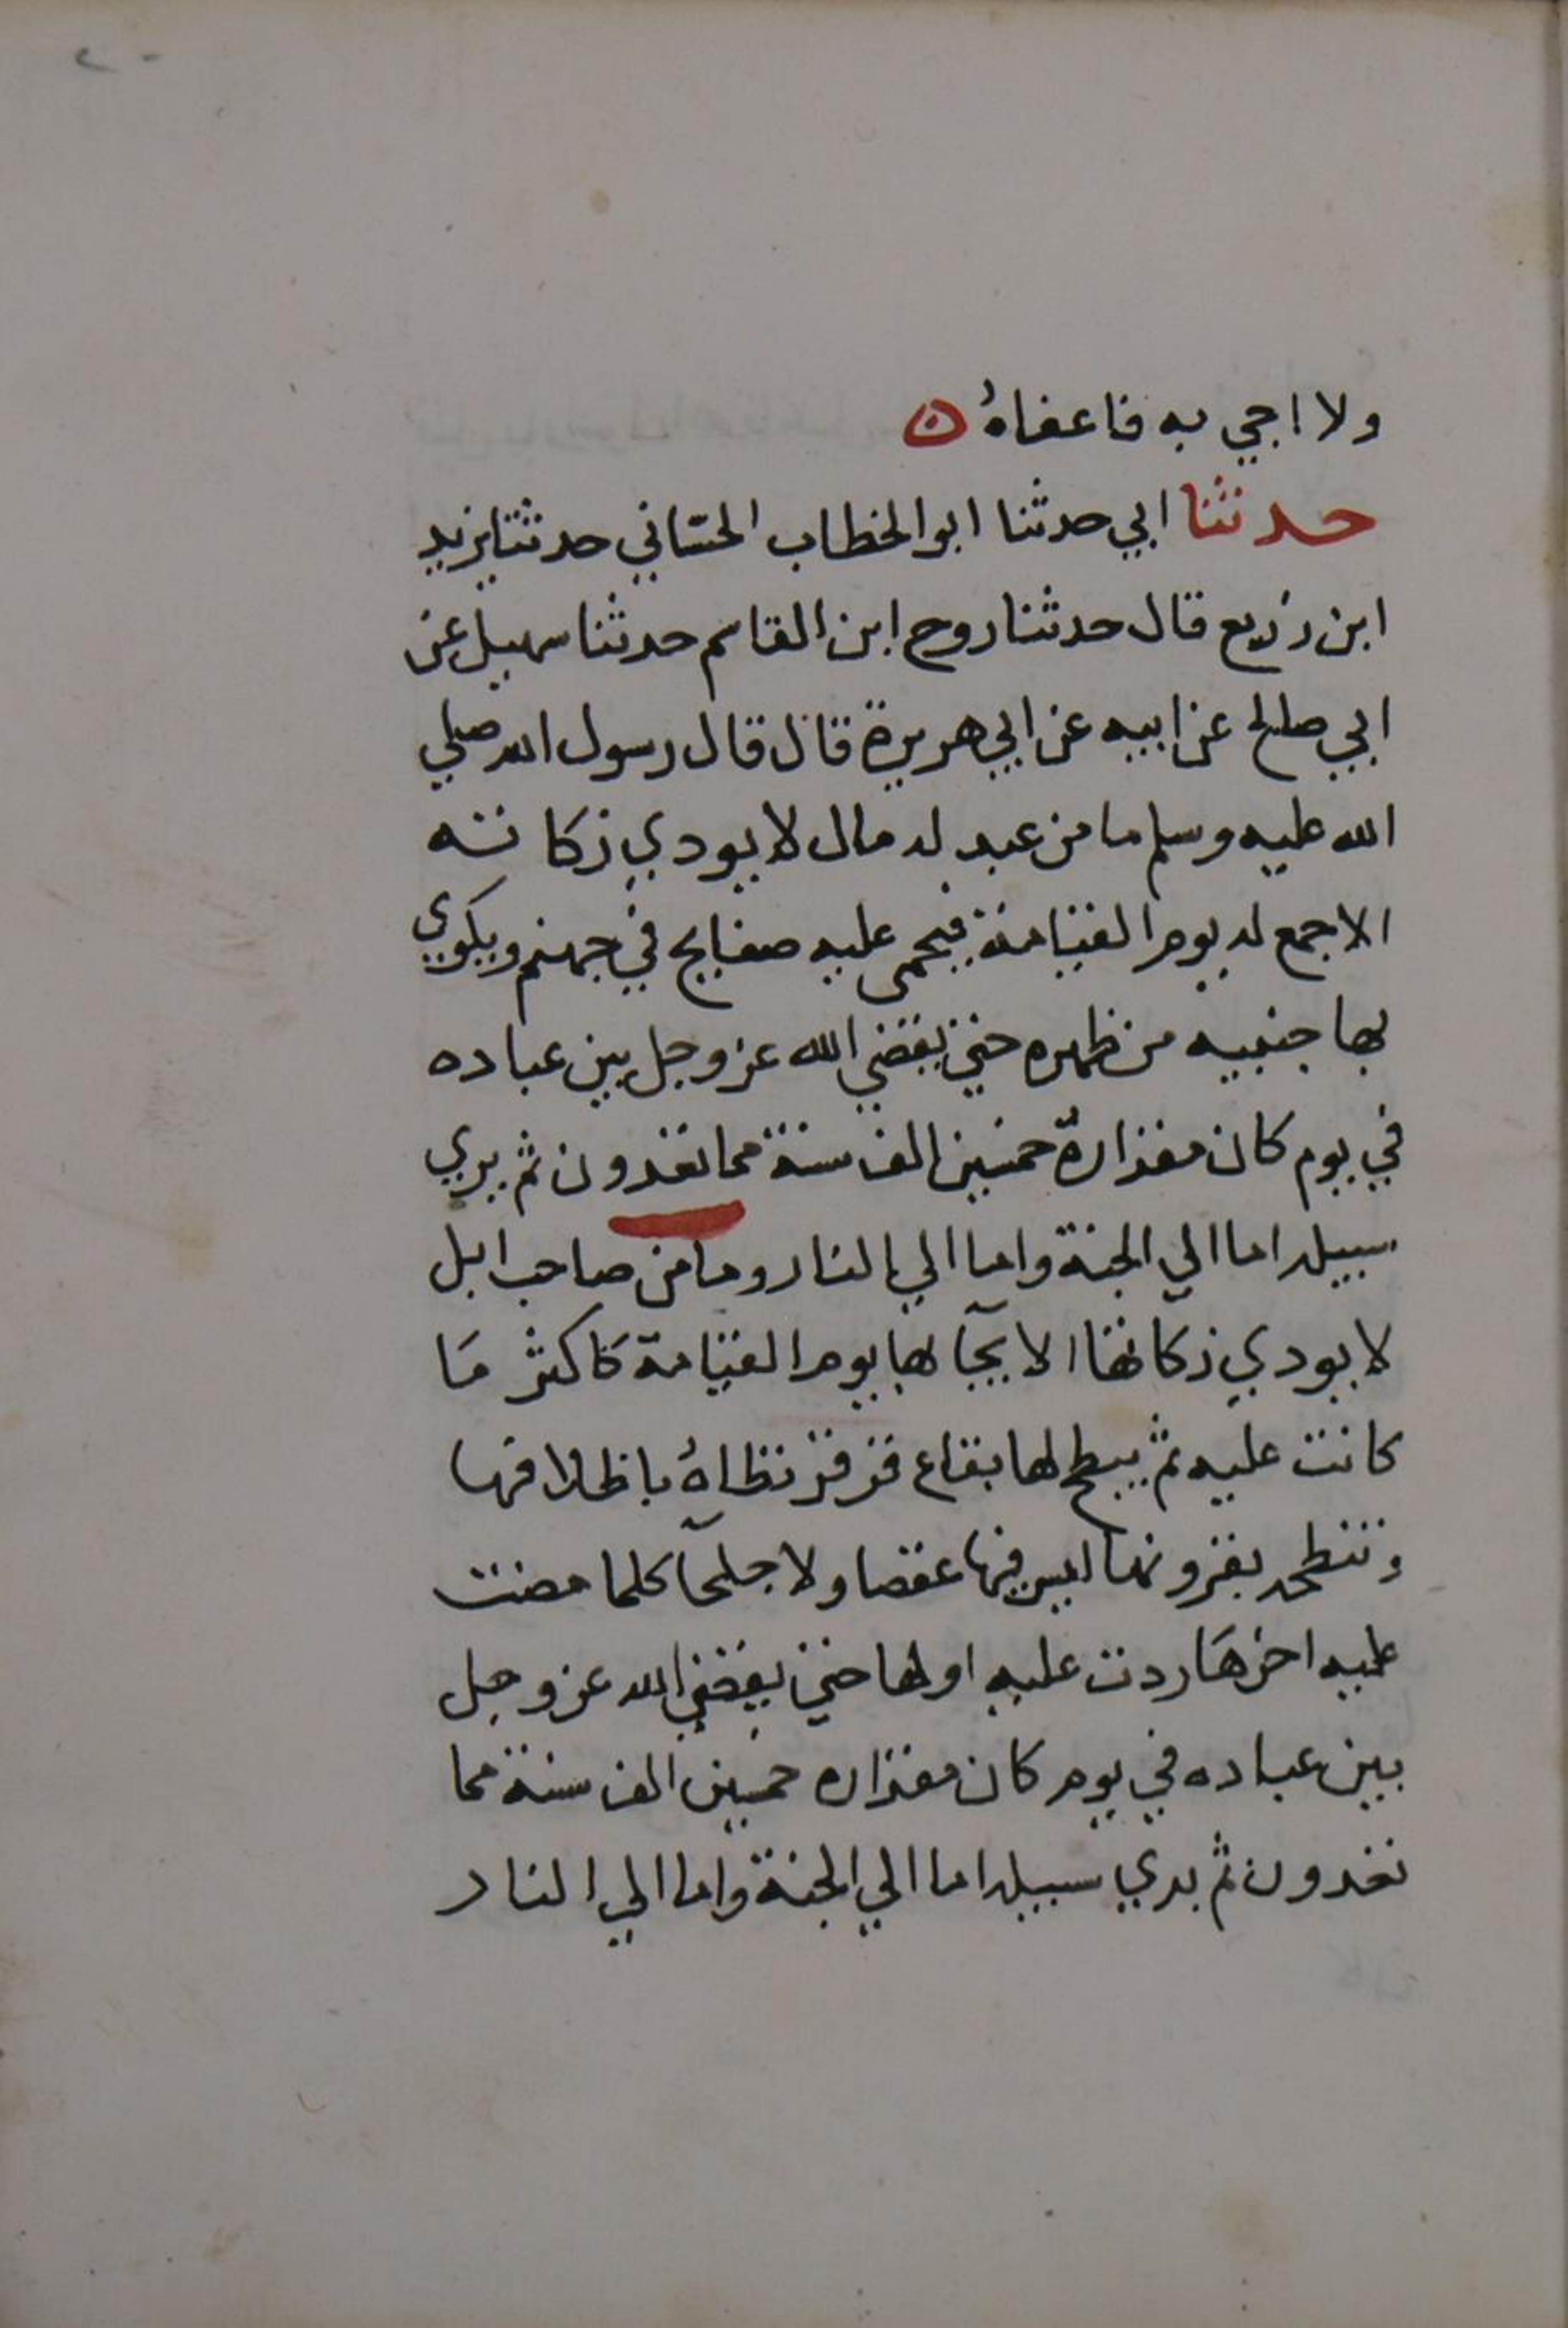 ٢٠
ولا اجي به فاعفاهُ ن
حدثنا ابي حدثنا ابو الخطاب الحسّاني حدثنا يزيد
ابن زريع قال حدثنا روح ابن القاسم حدثنا سهيل عن
ابي صالح عن ابيه عن ابي هريرة قال قال رسول الله صلي
الله عليه وسلم ما من عبد له مال لا يودي زكاته
الا جمع له يوم القيامة فيحمى عليه صفايح في جهنم ويكوي
بها جنبيه من ظهره حتي يقضي الله عز وجل بين عباده
في يوم كان مقدارهُ خمسين الف سنة مما تعدون ثم يري
سبيله اما الي الجنة واما الي النار وما من صاحب ابل
لا يودي زكاتها الا يجآ بها يوم القيامة كاكثر مَا
كانت عليه ثم يبطح لها بقاع قرقر تطاهُ باظلافها
وتنطحه بقرونها ليس فيها عقصا ولا جلحآ كلما مضت
عليه اخرهَا ردت عليه اولها حتي يقضي الله عز وجل
بين عباده في يوم كان مقداره خمسين الف سنة مما
تعدون ثم يري سبيله اما الي الجنة واما الي النار